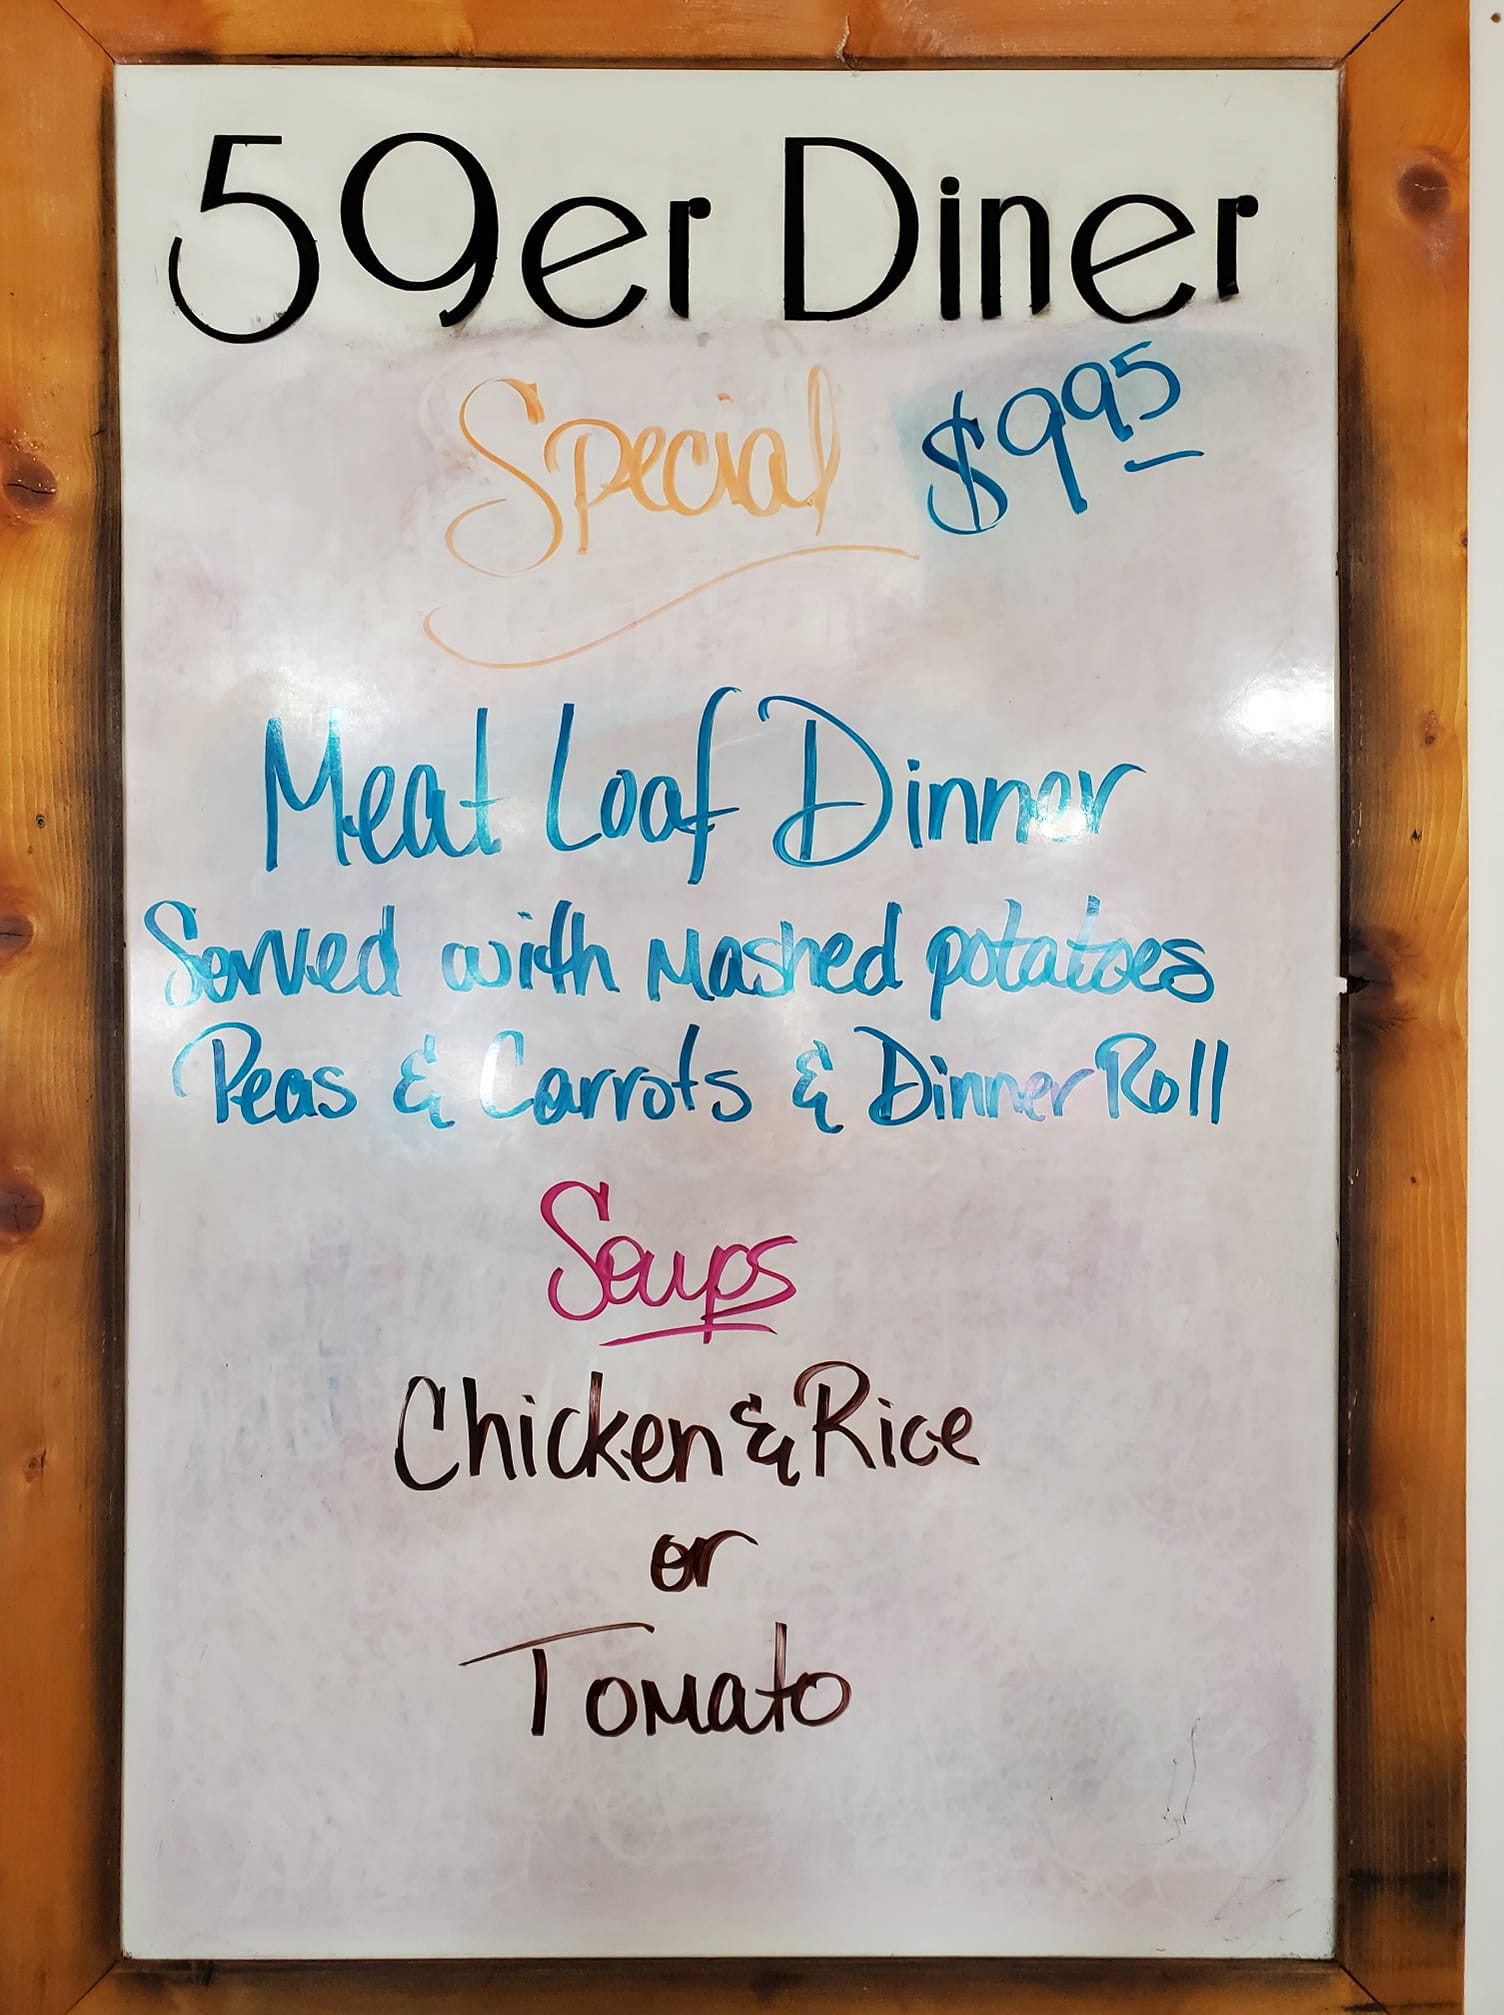 59er Diner
Special $9.95
Meat Loaf Dinner
Served with Mashed potatoes
Peas & Carrots & Dinner Roll
Soups
Chicken & Rice
or
Tomato